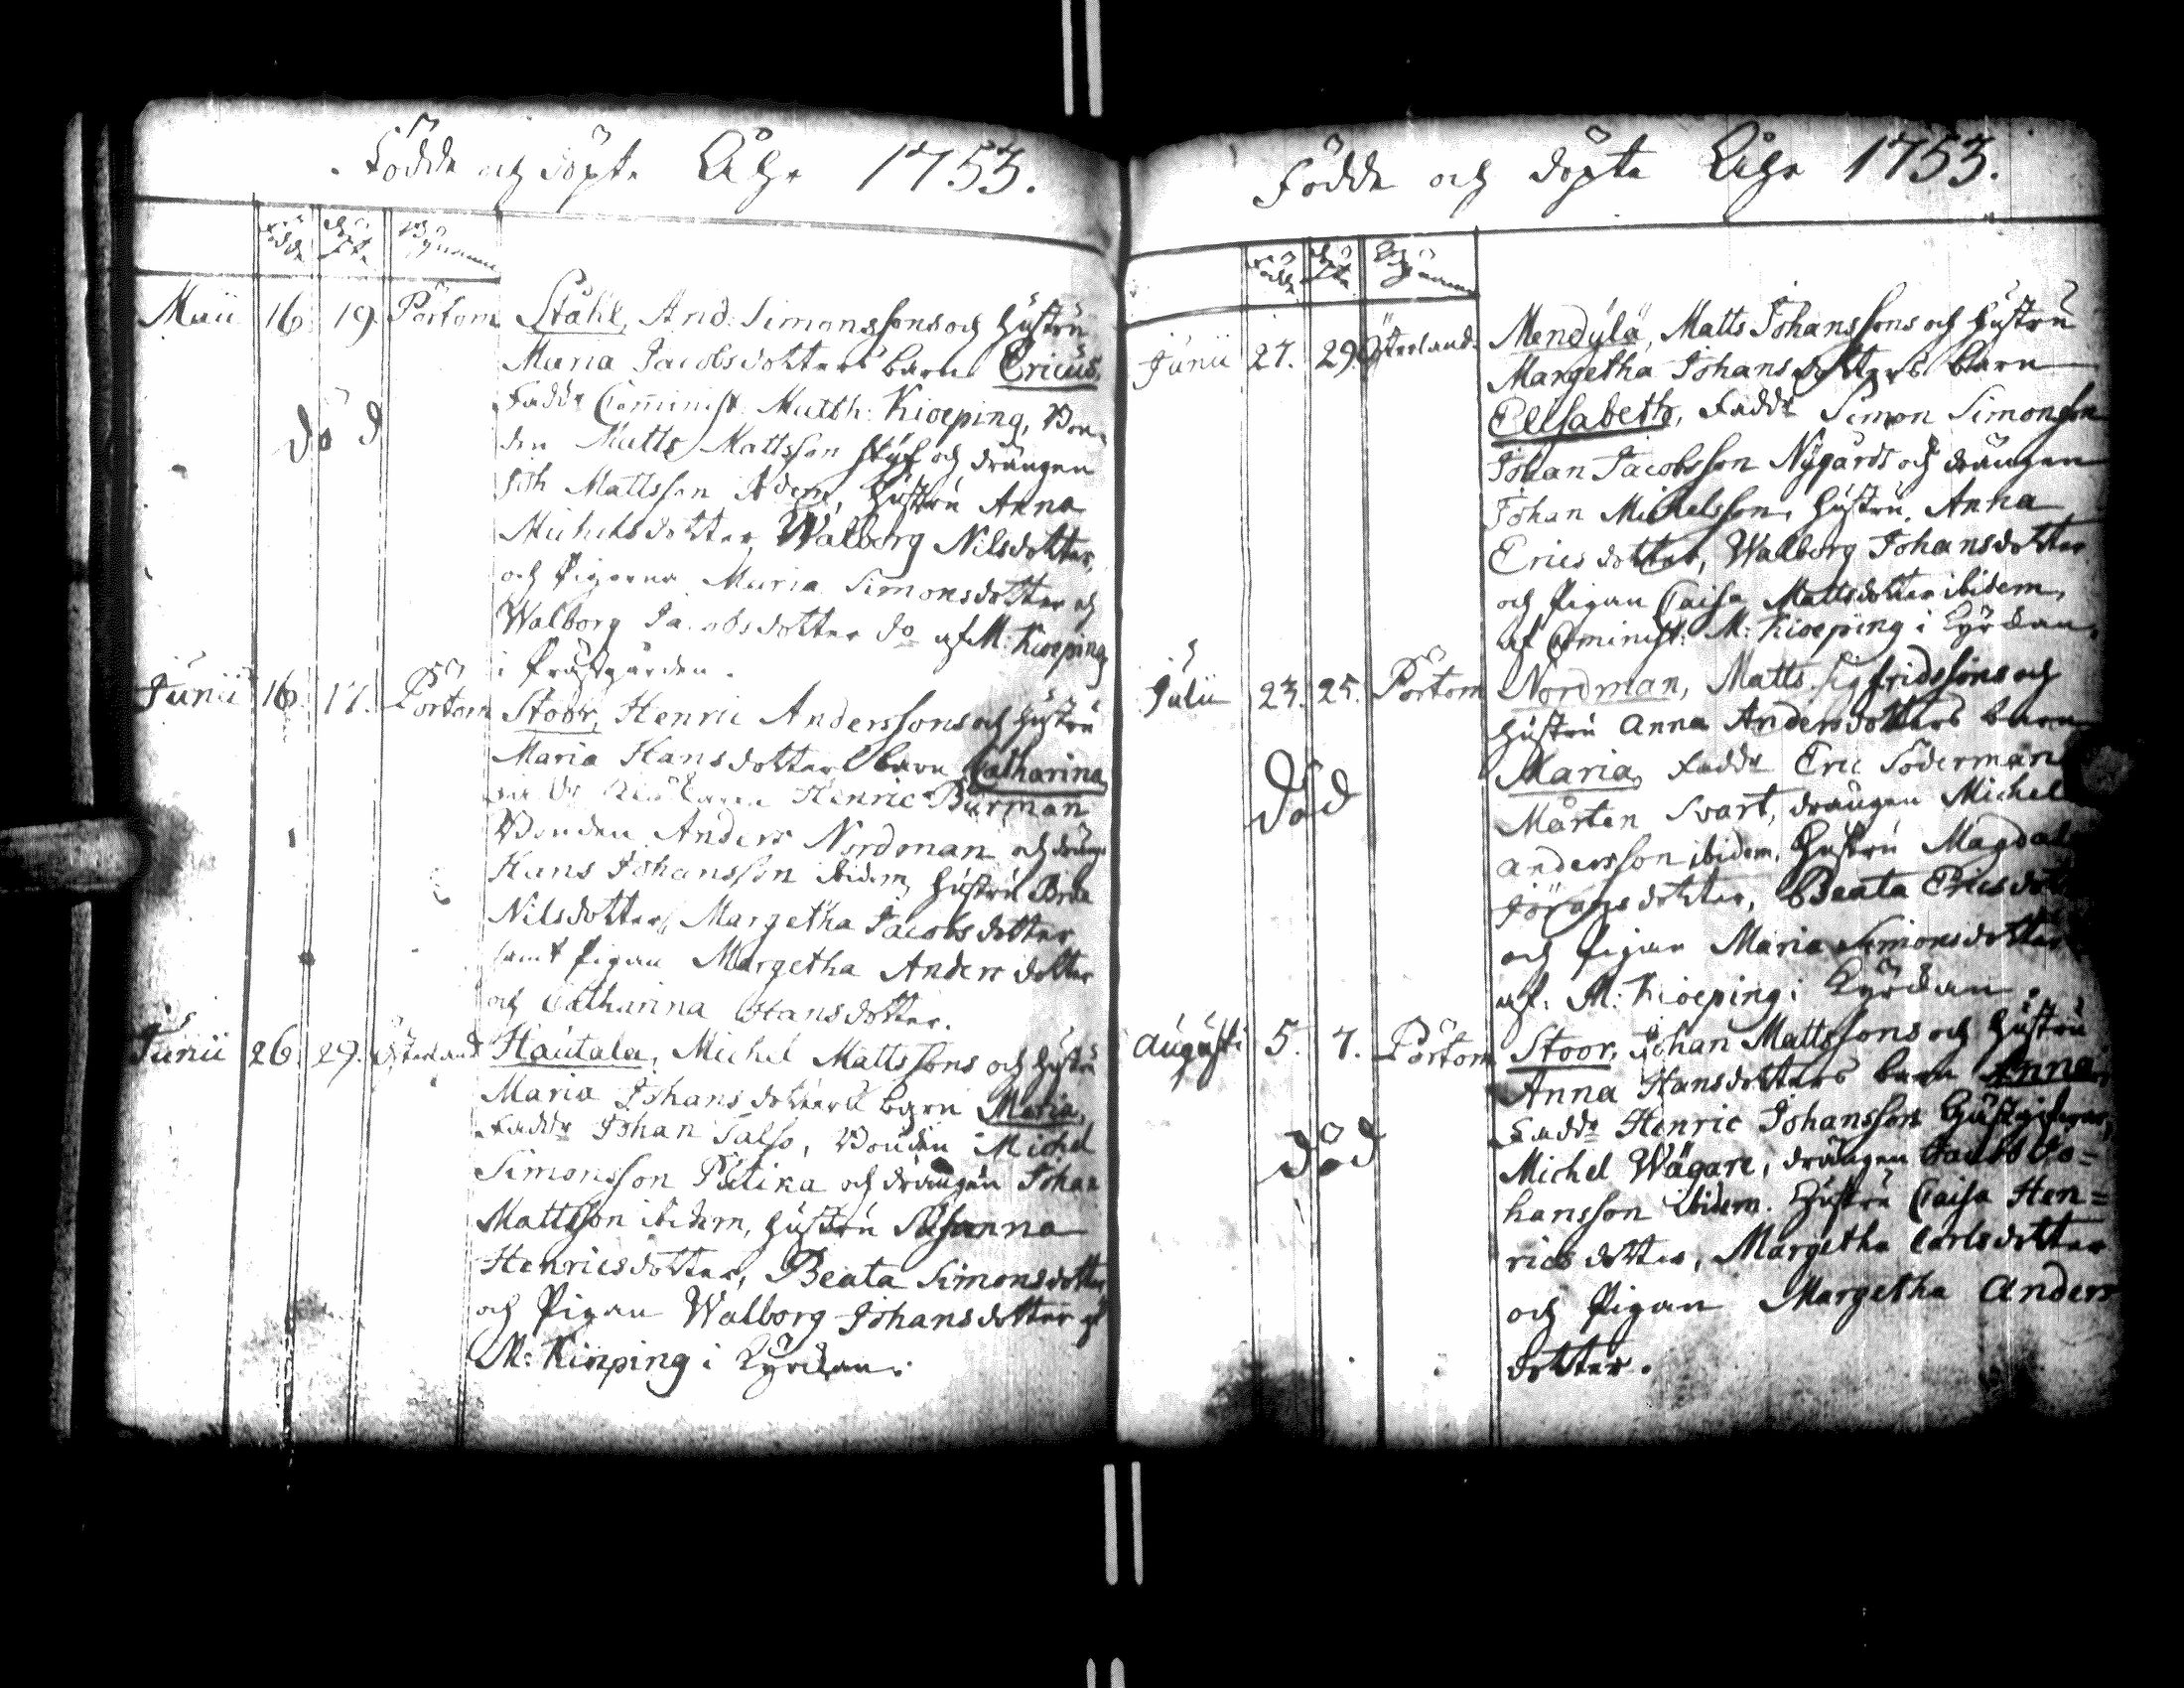 Födde och döpte Åhr 1753.
Födde döpte Byarne
Maii 16 19. Pörtom Ståhl, And: Simonssons och hustru
Maria Jacobsdotters barn Ericus.
Faddr Comminist. Matth: Kioeping, Bon-
död
den Matts Mattsson och drängen
Joh Mattsson Idem, hustru Anna
Michelsdotter, Walborg Nilsdotter,
och Pigorna Maria Simonsdotter och
Walborg Jacobsdotter do af M: Kioeping
i Prästgården.
Junii 16. 17. Pörtom Stoor, Henric Anderssons och hustru
Maria Hansdotters barn Catharina
Henric Burman
Bonden Anders Nordman och dräng
Hans Johansson ibidem, hustru
Nilsdotter, Margetha Jacobsdotter
samt Pigan Margetha Andersdotter
och Catharina Hansdotter.
Junii 26. 29. Österland Hautala, Michel Mattssons och hustru
Maria Johansdotters barn Maria,
Faddr Johan Salso, Bonden Michel
Simonsson och drängen Johan
Mattsson ibidem, hustru Susanna
Henricsdotter, Beata Simonsdotter
och Pigan Walborg Johansdotter af
M: Kioeping i Kyrckan.
Födde och döpte Åhr 1753.
Födde döpte Byarne
Junii 27. 29. Österland. Mendylä, Matts Johanssons och hustru
Margetha Johansdotters barn
Elisabeth, Faddr Simon Simonsson
Johan Jacobsson Nygårds och drängen
Johan Michelsson, hustru Anna
Ericsdotter, Walborg Johansdotter
och Pigan Caisa Mattsdotter ibidem,
af Cominist: M: Kioeping i Kyrckan.
Julii 23. 25. Pörtom Nordman, Matts Sigfridssons och
hustru Anna Andersdotters barn
Maria, Faddr Eric Söderman
död
Mårten Svart, drängen Michel
Andersson ibidem, hustru Magdal
Jöransdotter, Beata Ericsdot
och Pigan Maria Simonsdotter
af. M: Kioeping i Kyrckan.
Augusti 5. 7. Pörtom Stoor, Johan Mattssons och hustru
Anna Hansdotters barn Anna,
Faddr Henric Johansson
död
Michel Wägare, drängen Jacob Jo=
hansson ibidem. Hustru Caisa Hen=
ricsdotter, Margetha Carlsdotter
och Pigan Margetha Anders
dotter.